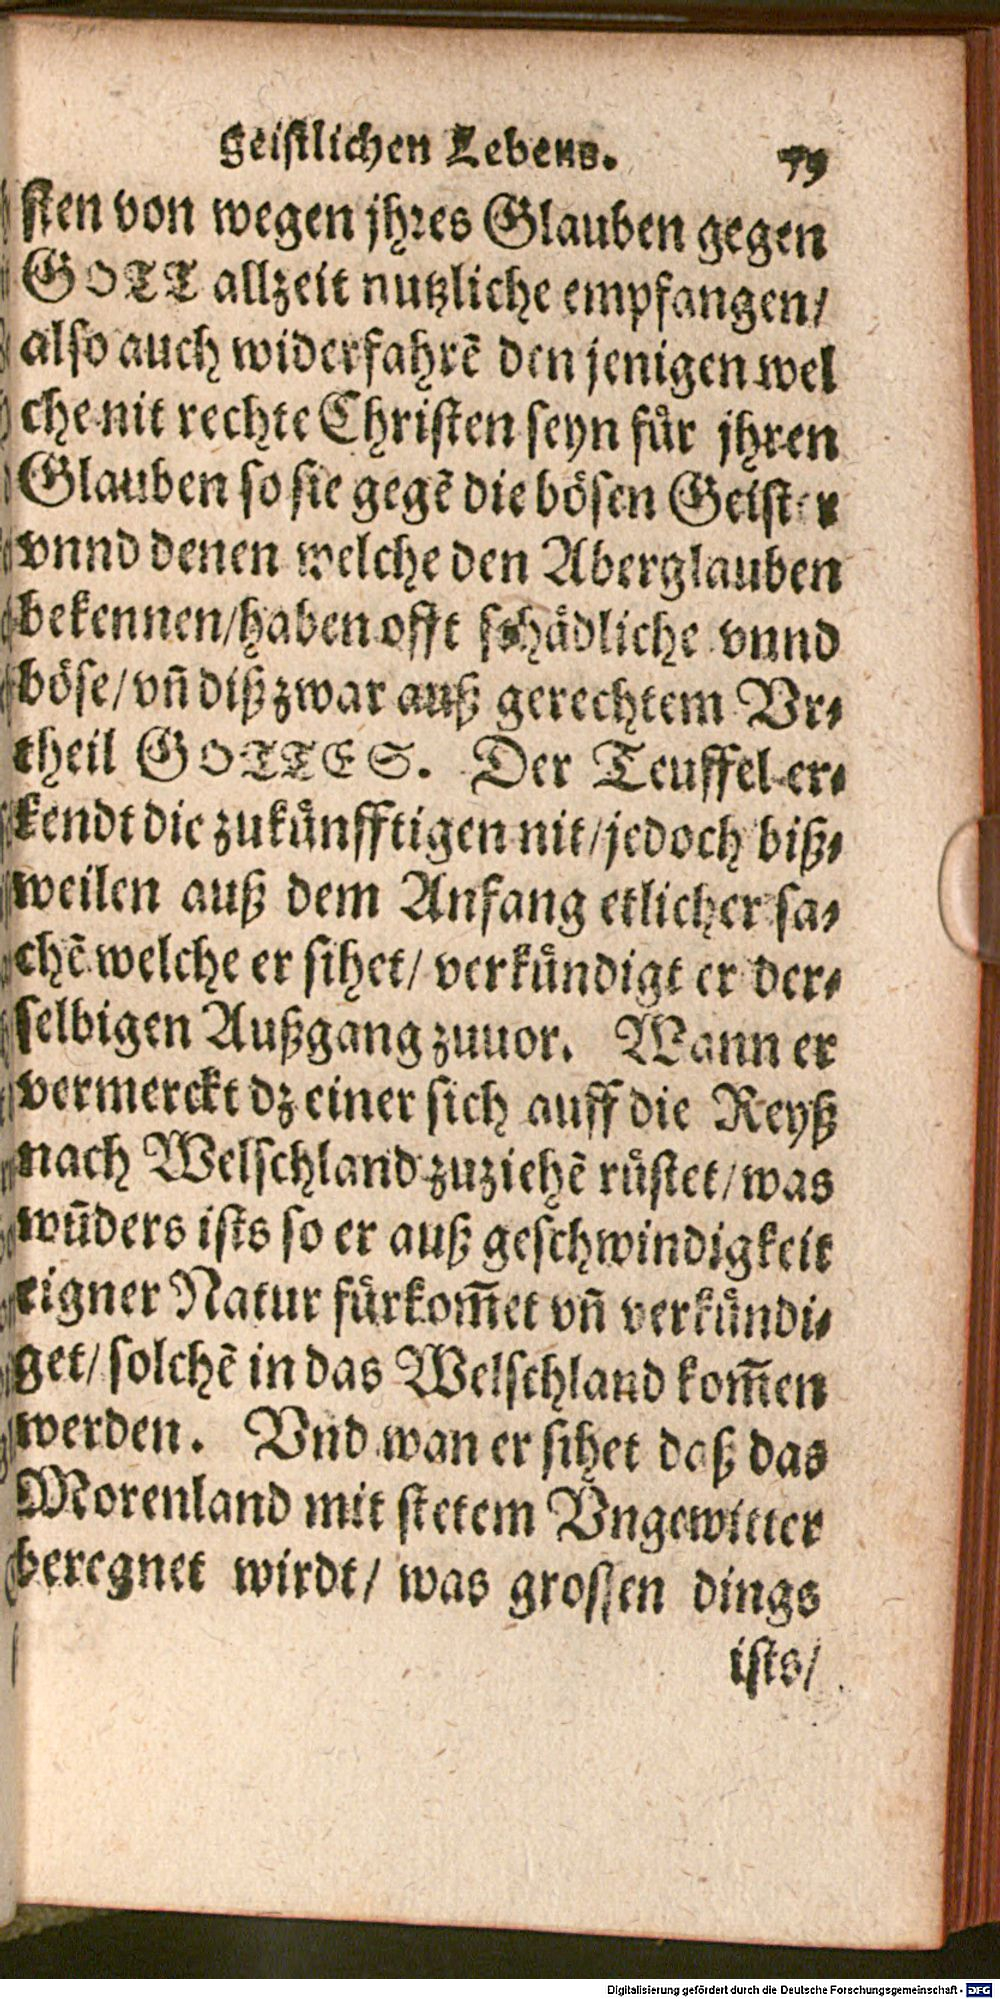 geistlichen Lebens. 79
sten von wegen jhres Glauben gegen
GOTT allzeit nutzliche empfangen/
also auch widerfahrẽ den jenigen wel
che nit rechte Christen seyn fuͤr jhren
Glauben so sie gegẽ die boͤsen Geister
vnnd denen welche den Aberglauben
bekennen/haben offt schaͤdliche vnnd
boͤse/vñ diß zwar auß gerechtem Vr⸗
theil GOTTES. Der Teuffel er⸗
kendt die zukuͤnfftigen nit/jedoch biß⸗
weilen auß dem Anfang etlicher sa⸗
chẽ welche er sihet/ verkuͤndigt er der⸗
selbigen Außgang zuuor. Wann er
vermerckt dz einer sich auff die Reyß
nach Welschland zuziehẽ ruͤstet/was
wũders ists so er auß geschwindigkeit
eigner Natur fuͤrkom̃et vñ verkuͤndi⸗
get/solchẽ in das Welschland kom̃en
werden. Vnd wan er sihet daß das
Morenland mit stetem Vngewitter
beregnet wirdt/ was grossen dings
ists/
Digitalisierung gefördert durch die Deutsche Forschungsgemeinschaft - DFG